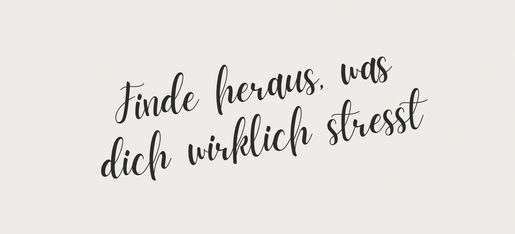 Finde heraus, was
dich wirklich stresst